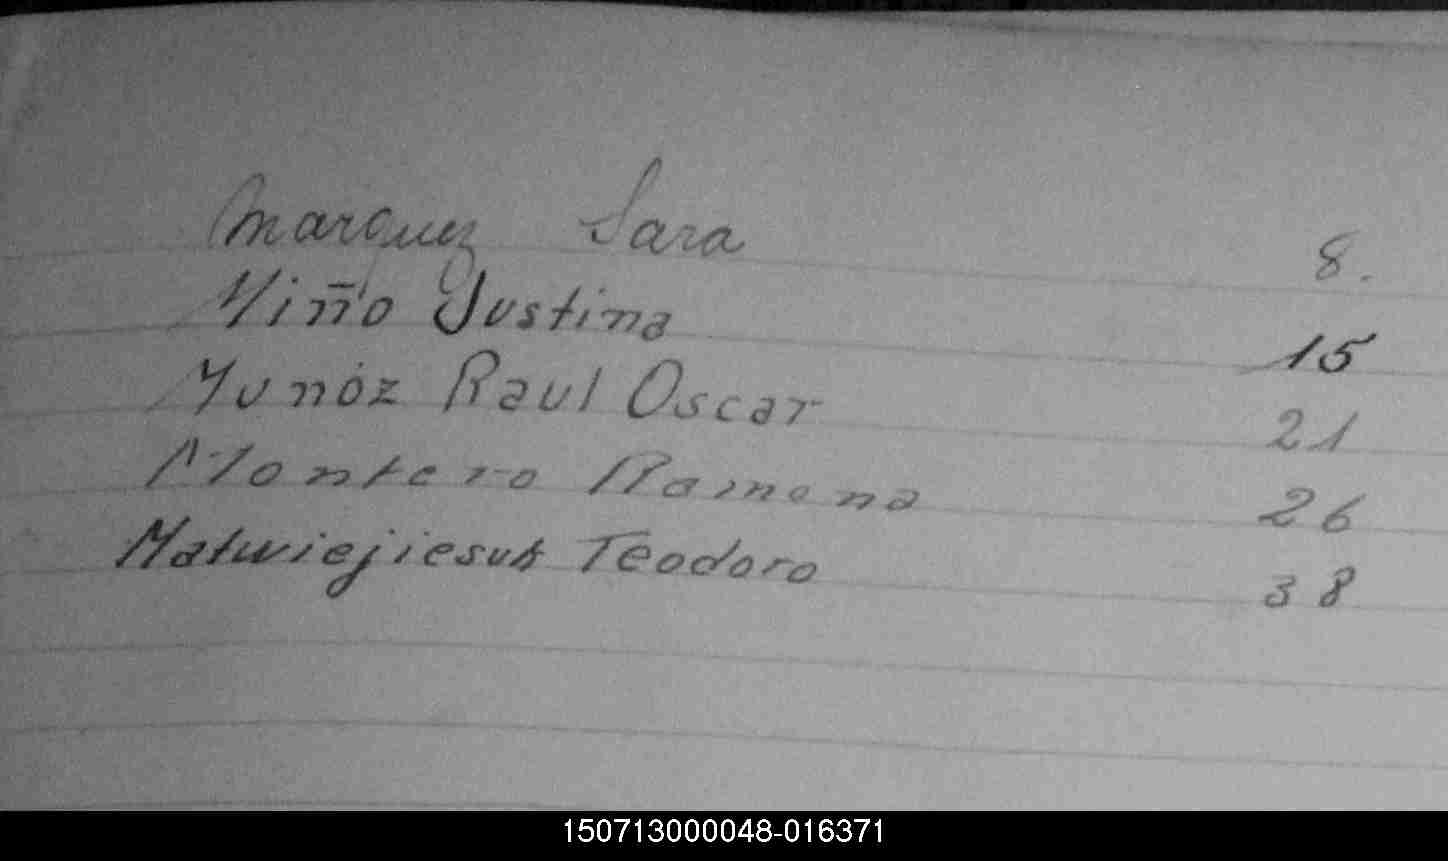 Marquez Sara 8.
Miño Justina 15
Munóz Raul Oscar 21
Montero Ramona 26
Matwiejiesuk Teodoro 38
150713000048-016371